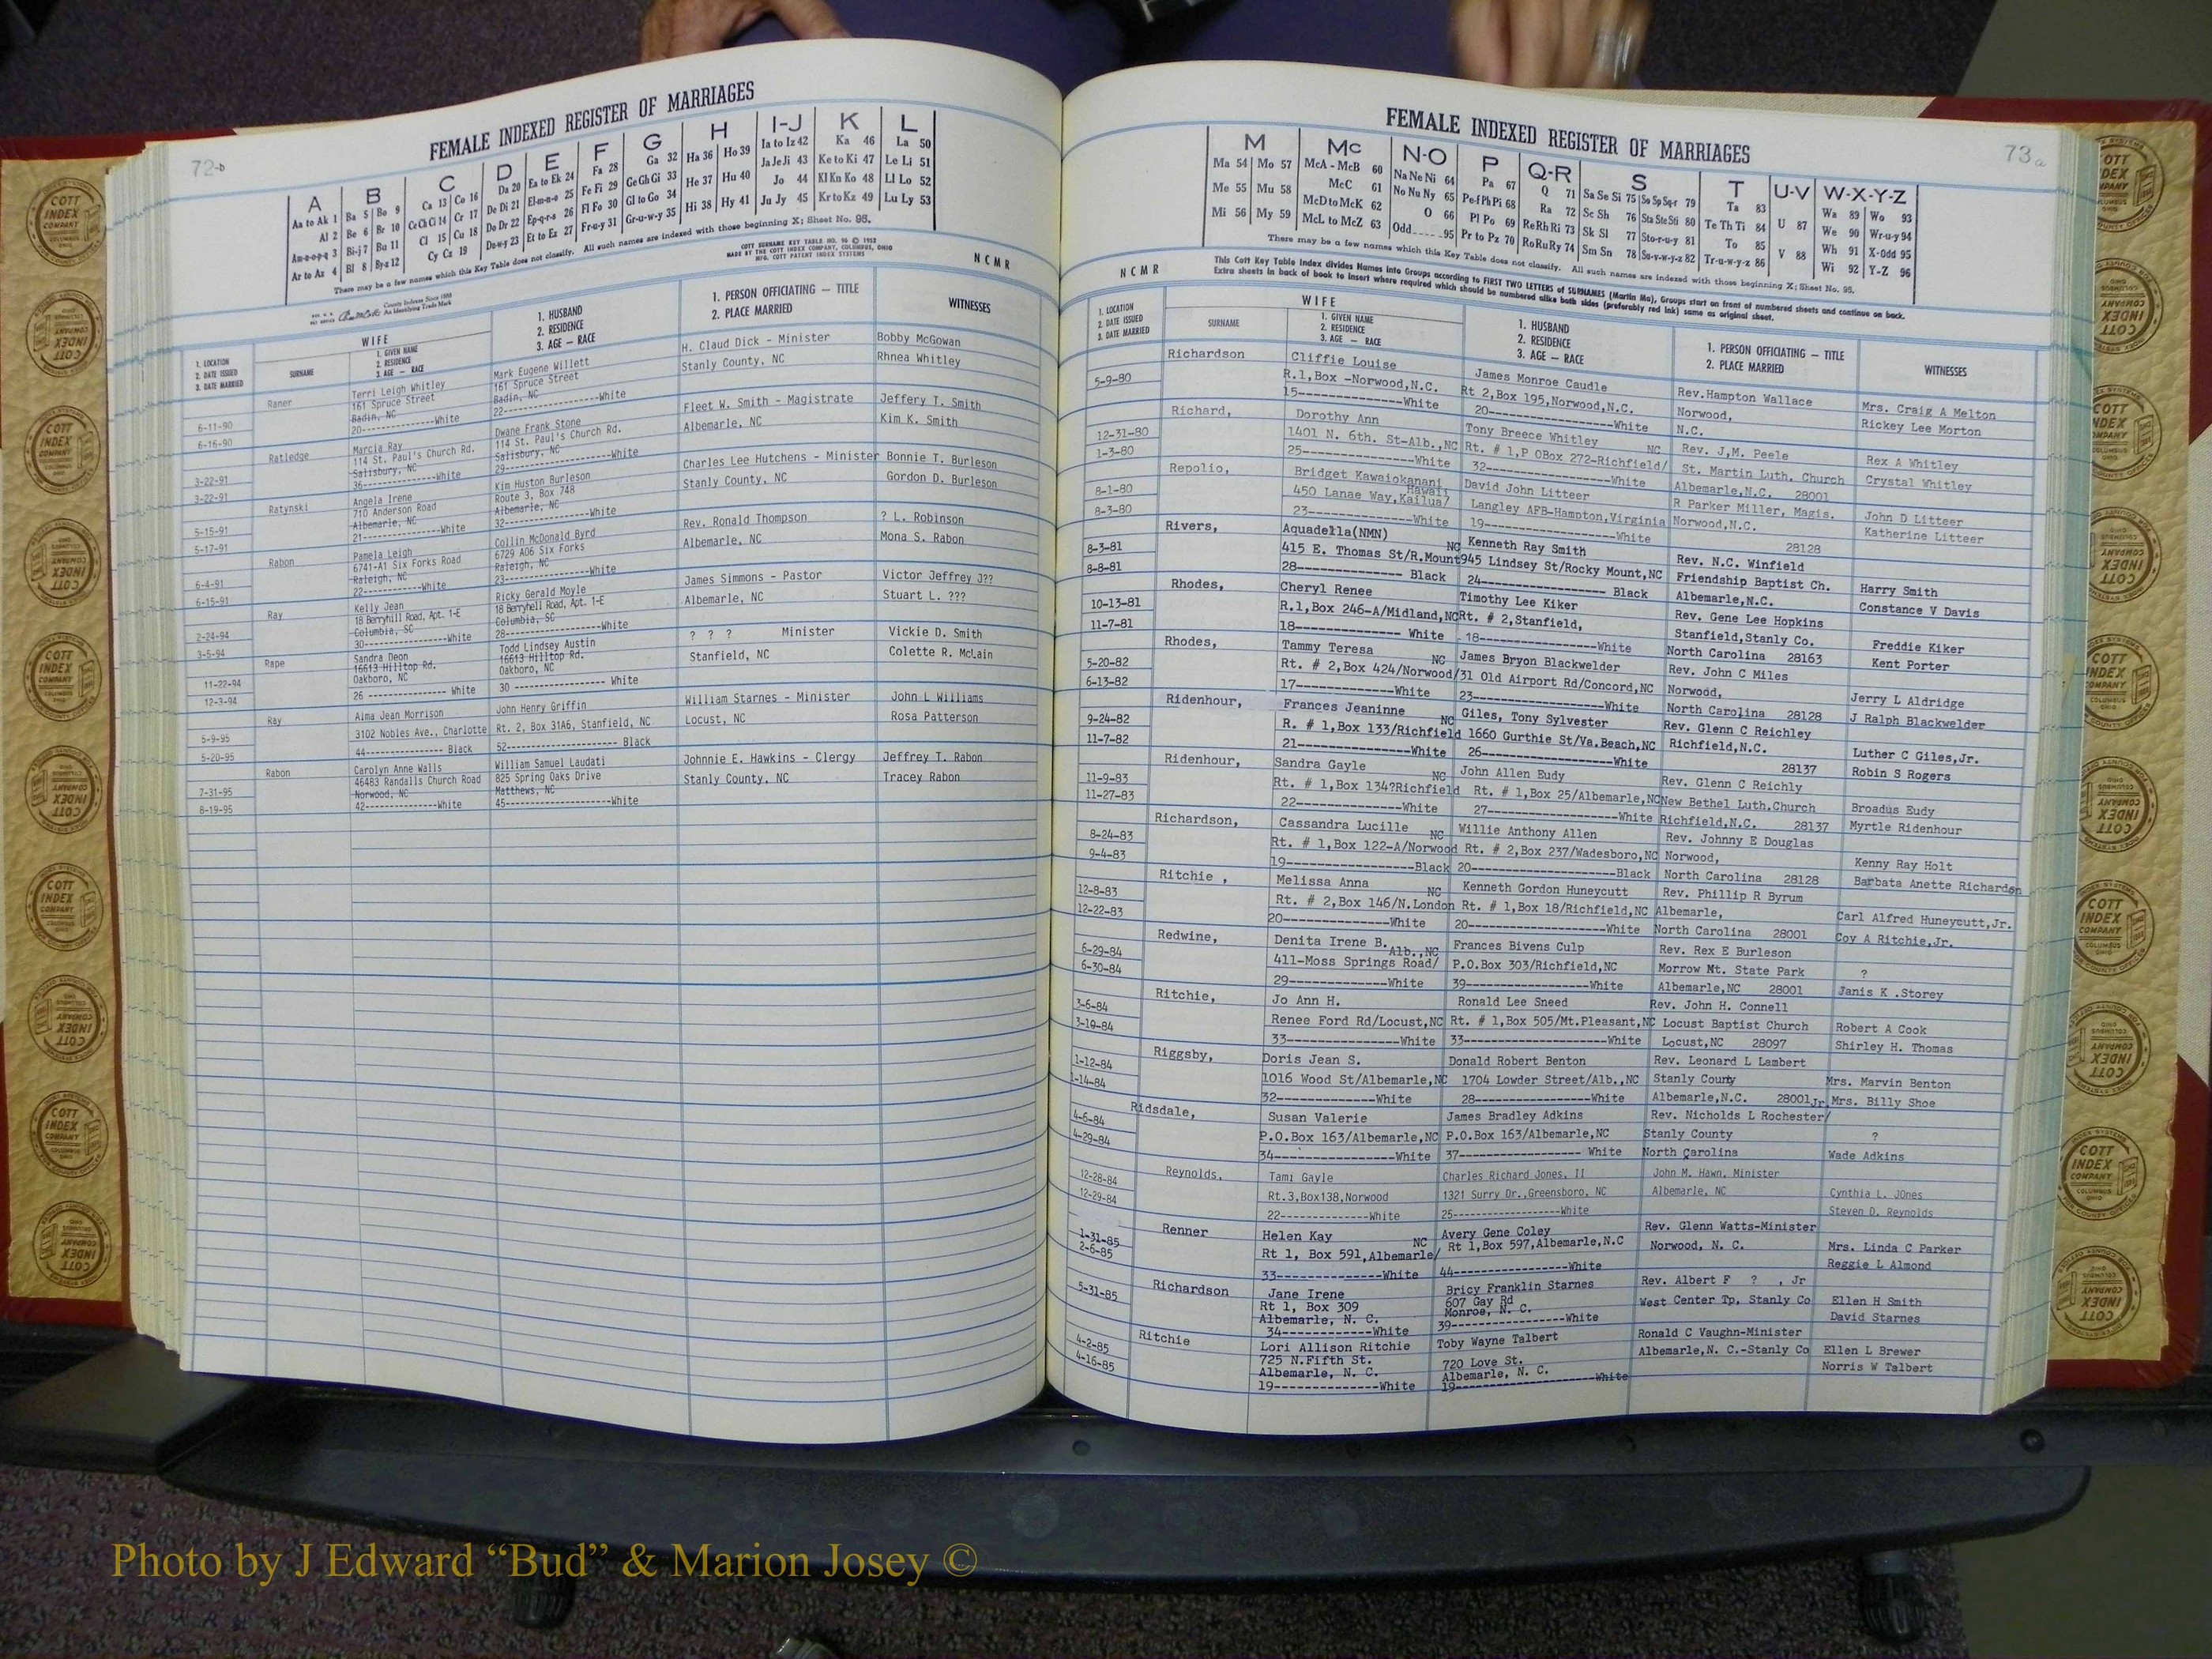 72-D
FEMALE INDEXED REGISTER OF MARRIAGES
A B C D E F G H I-J K L
Aa to Ak 1 Ba 5 Bo 9 Ca 13 Co 16 Da 20 Ea to Ek 24 Fa 28 Ga 32 Ha 36 Ho 39 Ia to Iz 42 Ka 46 La 50
Al 2 Be 6 Br 10 Ce Ch Ci 14 Cr 17 De Di 21 El-m-n-o 25 Fe Fi 29 Ge Gh Gi 33 He 37 Hu 40 Ja Je Ji 43 Ke to Ki 47 Le Li 51
Am-n-o-p-q 3 Bi-j 7 Bu 11 Cl 15 Cu 18 Do Dr 22 Ep-q-r-s 26 Fl Fo 30 Gl to Go 34 Hi 38 Hy 41 Jo 44 Kl Kn Ko 48 Ll Lo 52
Ar to Az 4 Bl 8 By-z 12 Cy Cz 19 Du-w-y 23 Et to Ez 27 Fr-u-y 31 Gr-u-w-y 35 Ju Jy 45 Kr to Kz 49 Lu Ly 53
There may be a few names which this Key Table does not classify. All such names are indexed with those beginning X; Sheet No. 95.
County Indexes Since 1888
An Identifying Trade Mark
COTT SURNAME KEY TABLE NO. 96 © 1952
MADE BY THE COTT INDEX COMPANY, COLUMBUS, OHIO
MFG. COTT PATENT INDEX SYSTEMS
N C M R
1. LOCATION
2. DATE ISSUED
3. DATE MARRIED
WIFE
SURNAME
1. GIVEN NAME
2. RESIDENCE
3. AGE — RACE
1. HUSBAND
2. RESIDENCE
3. AGE — RACE
1. PERSON OFFICIATING — TITLE
2. PLACE MARRIED
WITNESSES
Raner Terri Leigh Whitley Mark Eugene Willett H. Claud Dick - Minister Bobby McGowan
161 Spruce Street 161 Spruce Street Stanly County, NC Rhnea Whitley
6-11-90 Badin, NC Badin, NC
6-16-90 20---White 22---White
Ratledge Marcia Ray Dwane Frank Stone Fleet W. Smith - Magistrate Jeffery T. Smith
114 St. Paul's Church Rd. 114 St. Paul's Church Rd. Albemarle, NC Kim K. Smith
3-22-91 Salisbury, NC Salisbury, NC
3-22-91 36---White 29---White
Ratynski Angela Irene Kim Huston Burleson Charles Lee Hutchens - Minister Bonnie T. Burleson
710 Anderson Road Route 3, Box 748 Stanly County, NC Gordon D. Burleson
5-15-91 Albemarle, NC Albemarle, NC
5-17-91 21---White 32---White
Rabon Pamela Leigh Collin McDonald Byrd Rev. Ronald Thompson ? L. Robinson
6741-A1 Six Forks Road 6729 A06 Six Forks Albemarle, NC Mona S. Rabon
6-4-91 Raleigh, NC Raleigh, NC
6-15-91 22---White 23---White
Ray Kelly Jean Ricky Gerald Moyle James Simmons - Pastor Victor Jeffrey J??
18 Berryhill Road, Apt. 1-E 18 Berryhell Road, Apt. 1-E Albemarle, NC Stuart L. ???
2-24-94 Columbia, SC Columbia, SC
3-5-94 30---White 28---White
Rape Sandra Deon Todd Lindsey Austin ? ? ? Minister Vickie D. Smith
16613 Hilltop Rd. 16613 Hilltop Rd. Stanfield, NC Colette R. McLain
11-22-94 Oakboro, NC Oakboro, NC
12-3-94 26 --- White 30 --- White
Ray Alma Jean Morrison John Henry Griffin William Starnes - Minister John L Williams
5-9-95 3102 Nobles Ave., Charlotte Rt. 2, Box 31A6, Stanfield, NC Locust, NC Rosa Patterson
5-20-95 44--- Black 52--- Black
Rabon Carolyn Anne Walls William Samuel Laudati Johnnie E. Hawkins - Clergy Jeffrey T. Rabon
46483 Randalls Church Road 825 Spring Oaks Drive Stanly County, NC Tracey Rabon
7-31-95 Norwood, NC Matthews, NC
8-19-95 42---White 45---White
73a
FEMALE INDEXED REGISTER OF MARRIAGES
M Mc N-O P Q-R S T U-V W-X-Y-Z
Ma 54 Mo 57 McA - McB 60 Na Ne Ni 64 Pa 67 Q 71 Sa Se Si 75 So Sp Sq-r 79 Ta 83 Wa 89 Wo 93
Me 55 Mu 58 McC 61 No Nu Ny 65 Pe-f Ph Pi 68 Ra 72 Sc Sh 76 Sta Ste Sti 80 Te Th Ti 84 U 87 We 90 Wr-u-y 94
Mi 56 My 59 McD to McK 62 O 66 Pl Po 69 Re Rh Ri 73 Sk Sl 77 Sto-r-u-y 81 To 85 Wh 91 X-Odd 95
McL to McZ 63 Odd 95 Pr to Pz 70 Ro Ru Ry 74 Sm Sn 78 Su-v-w-y-z 82 Tr-u-w-y-z 86 V 88 Wi 92 Y-Z 96
There may be a few names which this Key Table does not classify. All such names are indexed with those beginning X; Sheet No. 95.
This Cott Key Table Index divides Names into Groups according to FIRST TWO LETTERS of SURNAMES (Martin Ma), Groups start on front of numbered sheets and continue on back.
Extra sheets in back of book to insert where required which should be numbered alike both sides (preferably red ink) same as original sheet.
N C M R
1. LOCATION
2. DATE ISSUED
3. DATE MARRIED
WIFE
SURNAME
1. GIVEN NAME
2. RESIDENCE
3. AGE — RACE
1. HUSBAND
2. RESIDENCE
3. AGE — RACE
1. PERSON OFFICIATING — TITLE
2. PLACE MARRIED
WITNESSES
Richardson Cliffie Louise James Monroe Caudle Rev.Hampton Wallace Mrs. Craig A Melton
5-9-80 R.1,Box -Norwood,N.C. Rt 2,Box 195,Norwood,N.C. Norwood, Rickey Lee Morton
15---White 20---White N.C.
Richard, Dorothy Ann Tony Breece Whitley Rev. J,M. Peele Rex A Whitley
12-31-80 1401 N. 6th. St-Alb.,NC Rt. # 1,P OBox 272-Richfield/ NC St. Martin Luth. Church Crystal Whitley
1-3-80 25---White 32---White Albemarle,N.C. 28001
Repolio, Bridget Kawaiokanani David John Litteer R Parker Miller, Magis. John D Litteer
8-1-80 450 Lanae Way,Kailua/ Hawaii Langley AFB-Hampton,Virginia Norwood,N.C. Katherine Litteer
8-3-80 23---White 19---White 28128
Rivers, Aquadella(NMN) Kenneth Ray Smith Rev. N.C. Winfield Harry Smith
8-3-81 415 E. Thomas St/R.Mount NC 945 Lindsey St/Rocky Mount,NC Friendship Baptist Ch. Constance V Davis
8-8-81 28--- Black 24--- Black Albemarle,N.C.
Rhodes, Cheryl Renee Timothy Lee Kiker Rev. Gene Lee Hopkins Freddie Kiker
10-13-81 R.1,Box 246-A/Midland,NC Rt. # 2,Stanfield, Stanfield,Stanly Co. Kent Porter
11-7-81 18--- White 18---White North Carolina 28163
Rhodes, Tammy Teresa James Bryon Blackwelder Rev. John C Miles Jerry L Aldridge
5-20-82 Rt. # 2,Box 424/Norwood/ NC 31 Old Airport Rd/Concord,NC Norwood, J Ralph Blackwelder
6-13-82 17---White 23---White North Carolina 28128
Ridenhour, Frances Jeaninne Giles, Tony Sylvester Rev. Glenn C Reichley Luther C Giles,Jr.
9-24-82 R. # 1,Box 133/Richfield NC 1660 Gurthie St/Va.Beach,NC Richfield,N.C. Robin S Rogers
11-7-82 21---White 26---White 28137
Ridenhour, Sandra Gayle John Allen Eudy Rev. Glenn C Reichly Broadus Eudy
11-9-83 Rt. # 1,Box 134?Richfield NC Rt. # 1,Box 25/Albemarle,NC New Bethel Luth.Church Myrtle Ridenhour
11-27-83 22---White 27---White Richfield,N.C. 28137
Richardson, Cassandra Lucille Willie Anthony Allen Rev. Johnny E Douglas Kenny Ray Holt
8-24-83 Rt. # 1,Box 122-A/Norwood NC Rt. # 2,Box 237/Wadesboro,NC Norwood, Barbata Anette Richardson
9-4-83 19---Black 20---Black North Carolina 28128
Ritchie , Melissa Anna Kenneth Gordon Huneycutt Rev. Phillip R Byrum Carl Alfred Huneycutt,Jr.
12-8-83 Rt. # 2,Box 146/N.London NC Rt. # 1,Box 18/Richfield,NC Albemarle, Coy A Ritchie,Jr.
12-22-83 20---White 20---White North Carolina 28001
Redwine, Denita Irene B. Frances Bivens Culp Rev. Rex E Burleson ?
6-29-84 411-Moss Springs Road/ Alb.,NC P.O.Box 303/Richfield,NC Morrow Mt. State Park Janis K .Storey
6-30-84 29---White 39---White Albemarle,NC 28001
Ritchie, Jo Ann H. Ronald Lee Sneed Rev. John H. Connell Robert A Cook
3-6-84 Renee Ford Rd/Locust,NC Rt. # 1,Box 505/Mt.Pleasant,NC Locust Baptist Church Shirley H. Thomas
3-10-84 33---White 33---White Locust,NC 28097
Riggsby, Doris Jean S. Donald Robert Benton Rev. Leonard L Lambert Mrs. Marvin Benton
1-12-84 1016 Wood St/Albemarle,NC 1704 Lowder Street/Alb.,NC Stanly County Mrs. Billy Shoe
1-14-84 32---White 28---White Albemarle,N.C. 28001
Ridsdale, Susan Valerie James Bradley Adkins Rev. Nicholds L Rochester/ Jr. ?
4-6-84 P.O.Box 163/Albemarle,NC P.O.Box 163/Albemarle,NC Stanly County Wade Adkins
4-29-84 34---White 37--- White North Carolina
Reynolds, Tami Gayle Charles Richard Jones, II John M. Hawn, Minister Cynthia L. JOnes
12-28-84 Rt.3,Box138,Norwood 1321 Surry Dr.,Greensboro, NC Albemarle, NC Steven D. Reynolds
12-29-84 22---White 25---White
Renner Helen Kay Avery Gene Coley Rev. Glenn Watts-Minister Mrs. Linda C Parker
1-31-85 Rt 1, Box 591,Albemarle/ NC Rt 1,Box 597,Albemarle,N.C Norwood, N. C. Reggie L Almond
2-6-85 33---White 44---White
Richardson Jane Irene Bricy Franklin Starnes Rev. Albert F ? , Jr Ellen H Smith
5-31-85 Rt 1, Box 309 607 Gay Rd West Center Tp, Stanly Co David Starnes
Albemarle, N. C. Monroe, N. C.
34---White 39---White
Ritchie Lori Allison Ritchie Toby Wayne Talbert Ronald C Vaughn-Minister Ellen L Brewer
4-2-85 725 N.Fifth St. 720 Love St. Albemarle,N. C.-Stanly Co Norris W Talbert
4-16-85 Albemarle, N. C. Albemarle, N. C.
19---White 19---White
COTT INDEX COMPANY COLUMBUS OHIO
Photo by J Edward “Bud” & Marion Josey ©